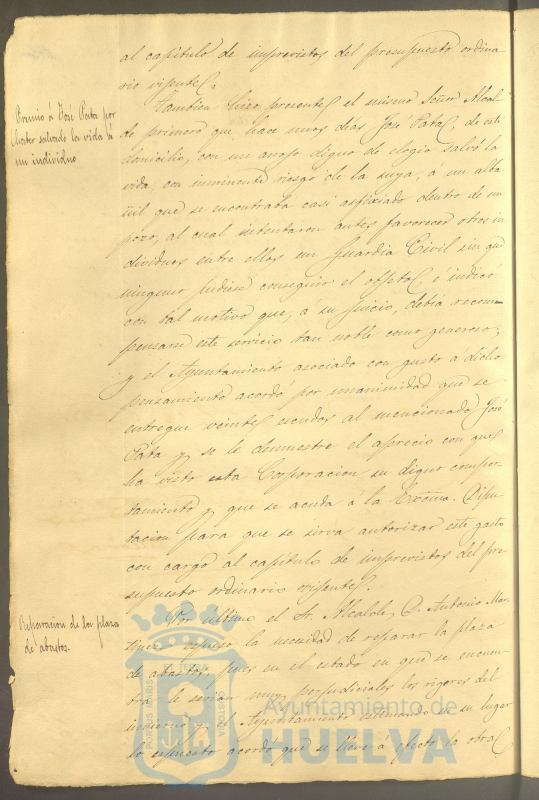 al capitulo de imprevistos del presupuesto ordina-
rio vigente.
Premio á José Pata por
haber salvado la vida á
un individuo
Tambien hizo presente el mismo Señor Alcal
de primero que hace unos dias José Pata, de este
domicilio, con un arrojo digno de elogio salvó la
vida, con inminente riesgo de la suya, á un alba
ñil que se encontraba casi asfixiado dentro de un
pozo, al cual intentaron antes favorecer otros in
dividuos entre ellos un Guardia Civil sin que
ninguno pudiese conseguir el objeto, é indicó
con tal motivo que, á su juicio, debia recom-
pensarse este servicio tan noble como generoso;
y el Ayuntamiento asociado con gusto á dicho
pensamiento acordó por unanimidad que se
entregue veinte escudos al mencionado José
Pata y se le demuestre el aprecio con que
ha visto esta Corporacion su digno compor-
tamiento y que se acuda á la Excma. Dipu-
tacion para que se sirva autorizar este gasto
con cargo al capitulo de imprevistos del pre-
supuesto ordinario vigente.
Reparacion de la plaza
de abastos.
Por último el Sr. Alcalde, D. Antonio Mar-
tinez espuso la necesidad de reparar la plaza
de abastos, pues en el estado en que se encuen-
tra le serian muy perjudiciales los rigores del
invierno y el Ayuntamiento estimando en su lugar
lo espuesto acordó que se lleve á efecto la obra
PORTUS MARIS
ET TERRAE
CUSTODIA
Ayuntamiento de
HUELVA